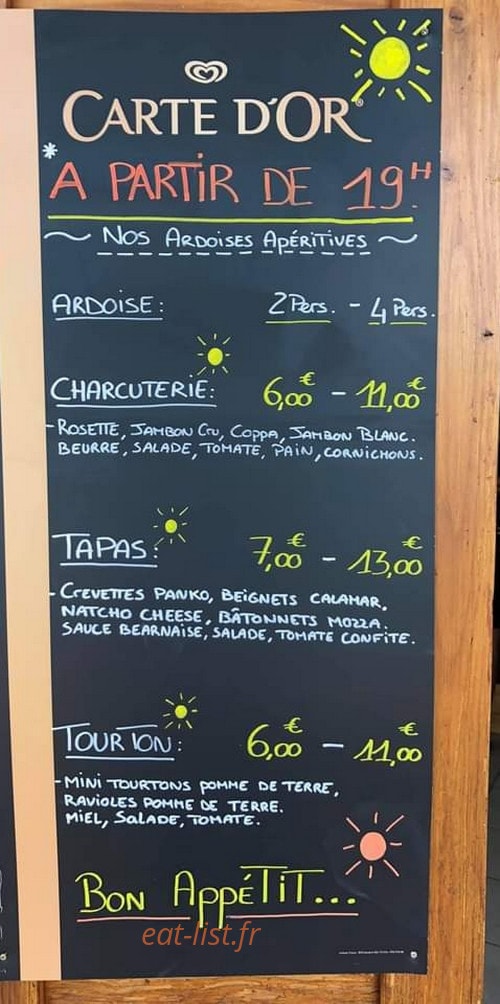 CARTE D'OR®
* A PARTIR DE 19H
~ NOS ARDOISES APÉRITIVES ~
ARDOISE: 2 Pers. - 4 Pers.
CHARCUTERIE: 6,00€ - 11,00€
- ROSETTE, JAMBON CRU, COPPA, JAMBON BLANC.
BEURRE, SALADE, TOMATE, PAIN, CORNICHONS.
TAPAS: 7,00€ - 13,00€
- CREVETTES PANKO, BEIGNETS CALAMAR,
NATCHO CHEESE, BÂTONNETS MOZZA.
SAUCE BEARNAISE, SALADE, TOMATE CONFITE.
TOURTON: 6,00€ - 11,00€
- MINI TOURTONS POMME DE TERRE,
RAVIOLES POMME DE TERRE.
MIEL, SALADE, TOMATE.
BON APPÉTIT...
eat-list.fr